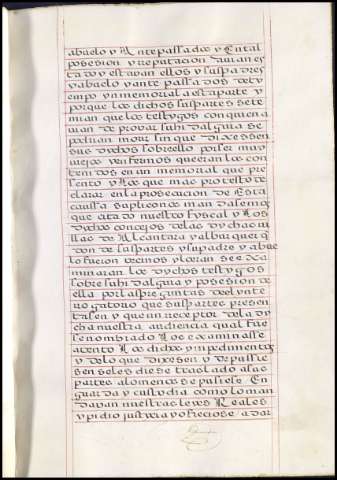 abuelo y Antepassados y En tal
posesion y reputacion auian es
tado y estauan ellos y sus padres
y abuelo y antepassados de ty
empo ynmemorial a esta parte y
porque los dichos sus partes se te
mian que los testygos con quien a
uian de prouar su hidalguia se
podrian morir sin que dixessen
sus dychos sobre ello por ser muy
viejos y enfermos que eran los con
tenidos en un memorial que pre
sento y Los que mas protesto de
clarar en la prosecucion de Esta
caussa suplico nos mandasemos
que citado nuestro fyscal y Los
dychos concejos de las dychas vi
llas de Alcantara y alburquerq
don de sus partes y su padre y abue
lo fueron vecinos y lo eran se exa
minaran los dychos testygos
sobre su hidalguia y posesion de
ella por las preguntas del ynte
rogatorio que sus partes presen
tasen y que un receptor de la dy
cha nuestra audiencia qual fue
se nombrado Los examinasse
atento Los dichos ympedimentos
y de lo que dixesen y depussie
sen se les diese traslado a sus
partes a lo menos se pusiese En
guarda y custodia como lo man
dauan nuestras leyes Reales
y pidio justicia y ofreciose a dar